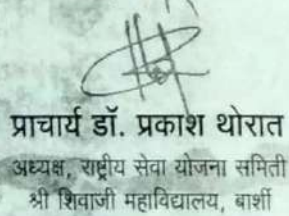 प्राचार्य डॉ. प्रकाश थोरात
अध्यक्ष, राष्ट्रीय सेवा योजना समिती
श्री शिवाजी महाविद्यालय, बार्शी